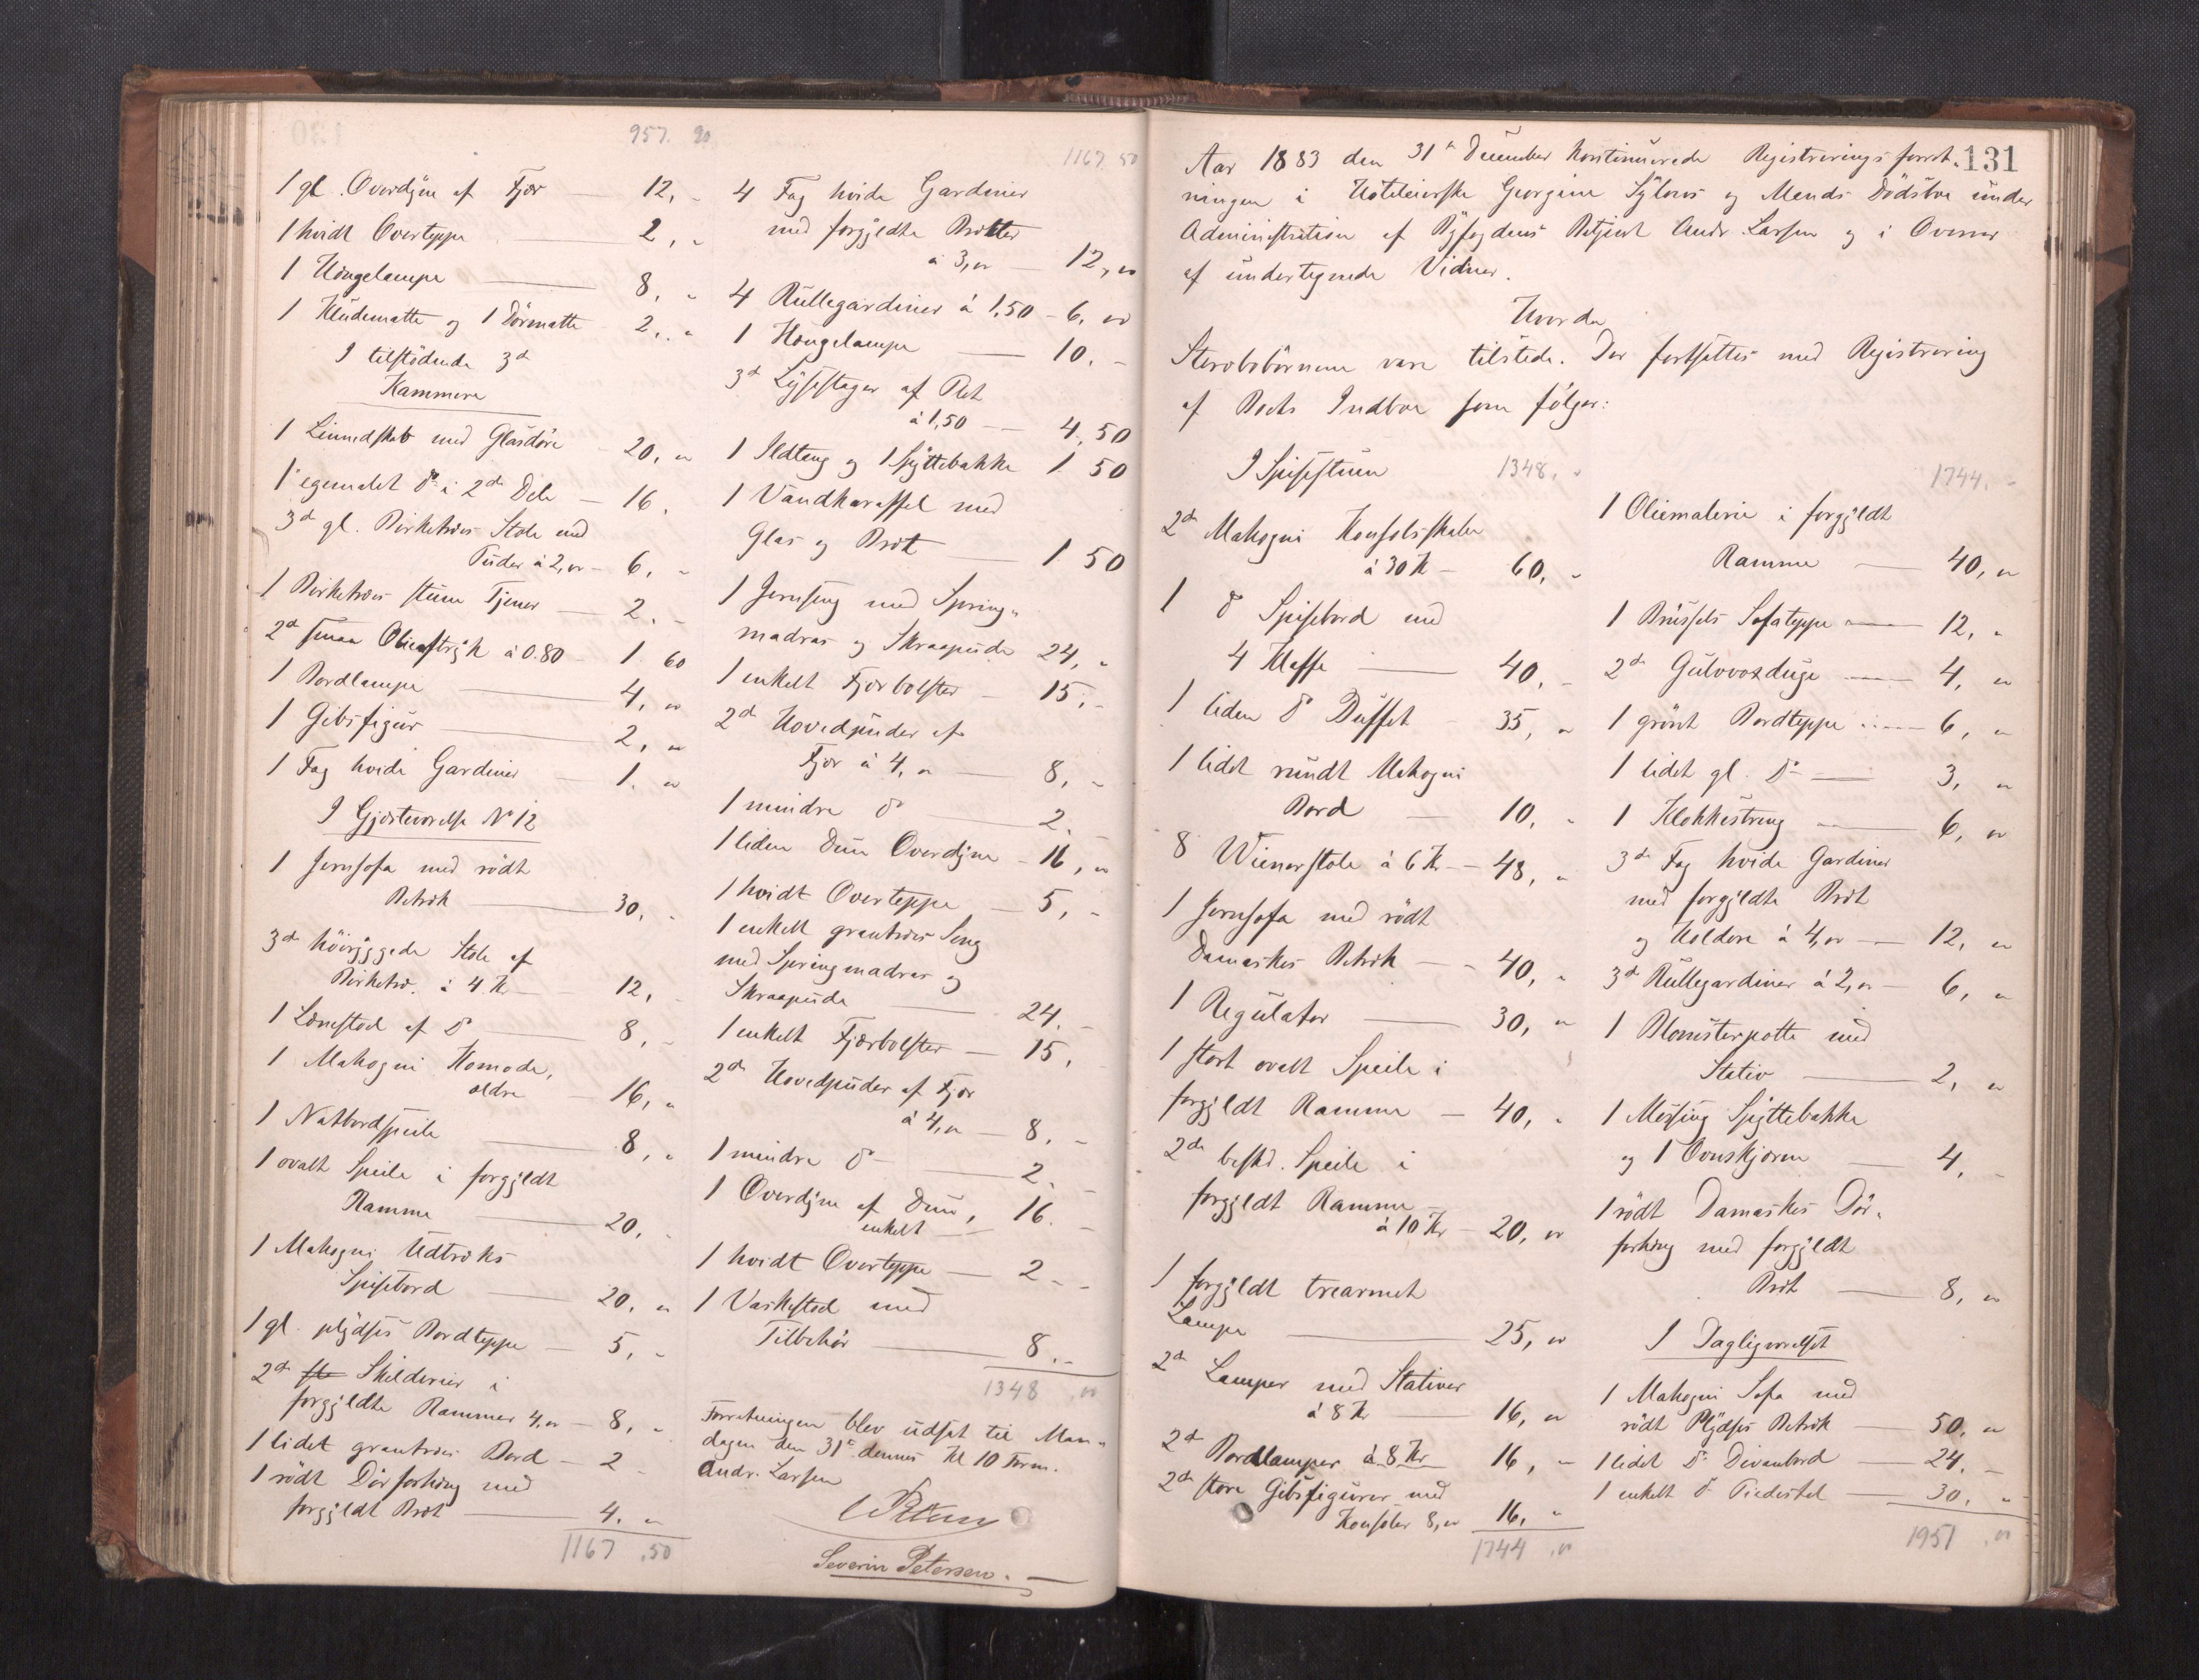 957. 90
1 gl. Overdyne af Fjær — 12, „
1 hvidt Overteppe 2, „
1 Hængelampe — 8, „
1 Kludematte og 1 Dörmatte 2, „
I tilstödende 3de
Kammere
1 Linnedskab med Glasdöre — 20, „
1 egemalet do i 2de Dele — 16.
3de gl. Birketræs Stole med
Puder à 2,00 — 6, „
1 Birketræs stum Tjener — 2. „
2de smaa Olietryk à 0.80 — 1. 60
1 Bordlampe — 4, „
1 Gibsfigur — 2, „
1 Fag hvide Gardiner — 1. „
I Gjesteværelse No 12
1 Jernsofa med rödt
Betræk — 30, „
3de höiryggede Stole af
Birketræ. à 4 Kr — 12, „
1 Lænestol af do — 8, „
1 Mahogni Komode,
ældre — 16, „
1 Natbordspeile — 8, „
1 ovalt Speile i forgyldt
Ramme — 20, „
1 Mahogni Udtræks
Spisebord — 20, „
1 gl. plydses Bordteppe — 5, „
2de Skilderier i
forgyldte Rammer 4,00 — 8, „
1 lidet grantræs Bord — 2 „
1 rödt Dörforhæng med
forgyldt Bret — 4. „
1167 .50
1167. 50
4 Fag hvide Gardiner
med forgyldte Bretter
à 3,00 — 12, 00
4 Rullegardiner à 1,50 — 6, 00
1 Hængelampe — 10. „
3de Lysestager af Plet
à 1,50 — 4, 50
1 Ildtang og 1 Spyttebakke 1 50
1 Vandkaraffel med
Glas og Bret — 1 50
1 Jernseng med Spring„
madras og Skraapude 24, „
1 enkelt Fjærbolster — 15, „
2de Hovedpuder af
Fjær à 4, 00 — 8, „
1 mindre do — 2. „
1 liden Dun Overdyne — 16, „
1 hvidt Overteppe — 5, „
1 enkelt grantræs Seng
med Springmadras og
Skraapude — 24. „
1 enkelt Fjærbolster — 15, „
2de Hovedpuder af Fjær
à 4, 00 — 8, „
1 mindre do — 2. „
1 Overdyne af Dun, 16. „
enkelt
1 hvidt Overteppe — 2 „
1 Vaskestol med
Tilbehör — 8. „
1348 .00
Forretningen blev udsat til Man„
dagen den 31te dennes Kl 10 Form.
Andr. Larsen
Severin Petersen.
131
Aar 1883 den 31te December kontinuerede Registreringsforret„
ningen i Hoteleierske Georgine Sylows og Mands Dödsbo under
Administration af Byfogdens Betjent Andr. Larsen og i Overvær
af undertegnede Vidner.
Hvorda
Stervbobörnene vare tilstede. Der fortsattes med Registrering
af Boets Indboe som fölger:
I Spisestuen 1348, „
2de Mahogni Konsolskabe
à 30 Kr — 60, „
1 do Spisebord med
4 Klaffe — 40, „
1 liden do Buffet — 35, „
1 lidet rundt Mahogni
Bord — 10, „
8 Wienerstole à 6 Kr — 48, „
1 Jernsofa med rödt
Damaskes Betræk — 40, „
1 Regulator — 30, „
1 stort ovalt Speile i
forgyldt Ramme — 40, „
2de beskd. Speile i
forgyldt Ramme
à 10 Kr — 20, 00
1 forgyldt trearmet
Lampe — 25, 00
2de Lamper med Stativer
à 8 Kr — 16, „
2de Bordlamper à 8 Kr 16, „
2de store Gibsfigurer med
Konsoler 8,00 16, „
1744 .00
1744. „
1 Oliemaleri i forgyldt
Ramme — 40, „
1 Brüssels Sofateppe — 12, „
2de Gulvvoxduge — 4, „
1 grönt Bordteppe — 6, „
1 lidet gl. do — 3, „
1 Klokkestreng — 6, „
3de Fag hvide Gardiner
med forgyldte Bret
og Holdere à 4,00 — 12, „
3de Rullegardiner à 2,00 — 6, „
1 Blomsterpotte med
Stativ — 2, „
1 Messing Spyttebakke
og 1 Ovnskjærm — 4, „
1 rödt Damaskes Dör„
forhæng med forgyldt
Bret — 8, „
I Dagligværelset
1 Mahogni Sofa med
rödt Plydses Betræk — 50, „
1 lidet do Divanbord — 24. „
1 enkelt do Piedestal — 30, „
1951 .00